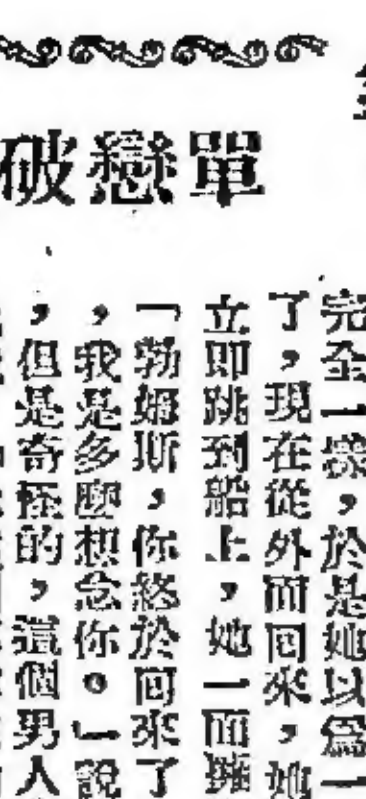 單戀破
完全一樣，於是她以爲一
了，現在從外面回來，她
立即跳到船上，她一面擁
「勃斯，你終於回來了
，我是多麼想念你。」說
，但是奇怪的，這個男人